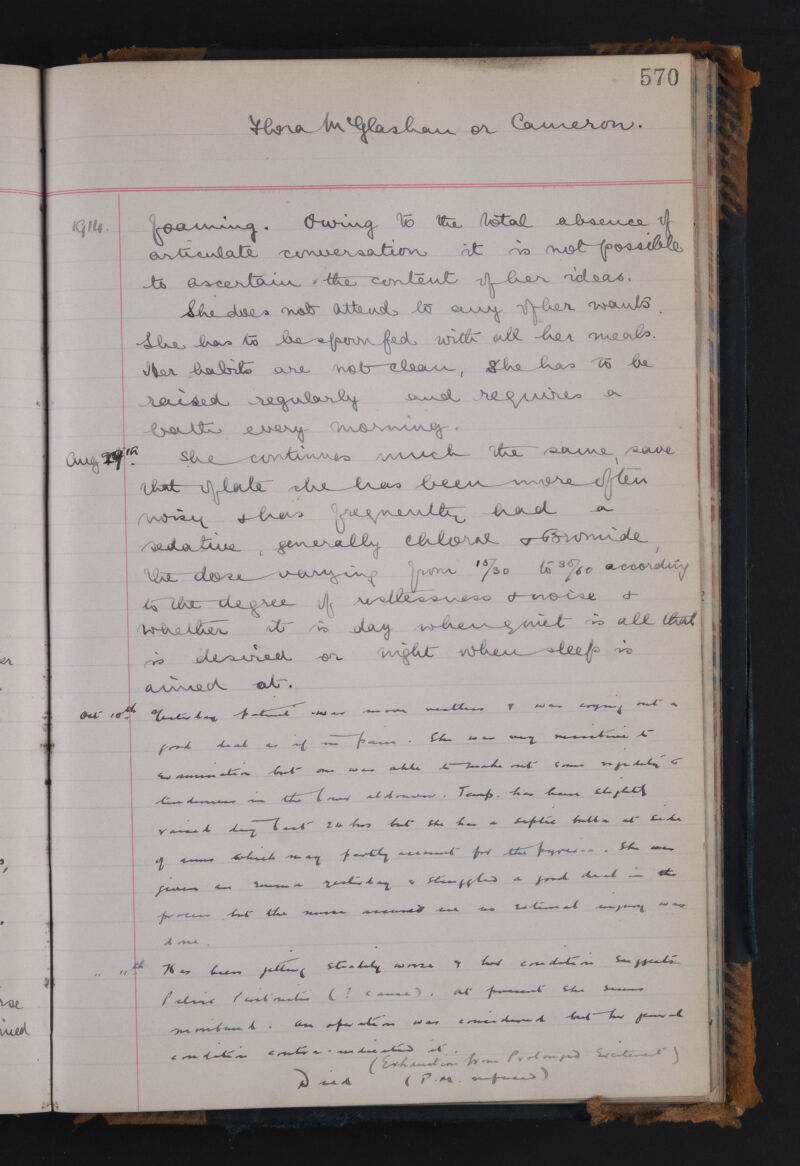 570
Flora McGlashan or Cameron.
1914. foaming. Owing to the total absence of
articulate conversation it is not possible
to ascertain the content of her ideas.
She does not attend to any of her wants.
She has to be spoon fed with all her meals.
Her habits are not clean, She has to be
raised regularly and requires a
bath every morning.
Aug 29th. She continues much the same, save
that of late she has been more often
noisy & has frequently had a
sedative, generally chloral & Bromide,
the dose varying from 15/30 to 30/60 according
to the degree of restlessness & noise &
whether it is day when quiet is all that
is desired or night when sleep is
aimed at.
Oct 10th Yesterday patient was more restless & was crying out a
good deal as if in pain. She was very resistive to
examination but one was able to make out some rigidity &
tenderness in the lower abdomen. Temp. has been slightly
raised last 24 hrs but she has a septic bulla at side
of anus which may partly account for the pyrexia. She was
given an enema yesterday & struggled a good deal in the
process but the nurse assured me no external injury was
done.
" 11th Has been getting steadily worse & her condition suggests
Pelvic Peritonitis (? cause). At present she seems
moribund. An operation was considered but her general
condition contra-indicated it.
(Exhaustion from Prolonged Excitement)
Died (P.M. refused)
er
,
rse
ined